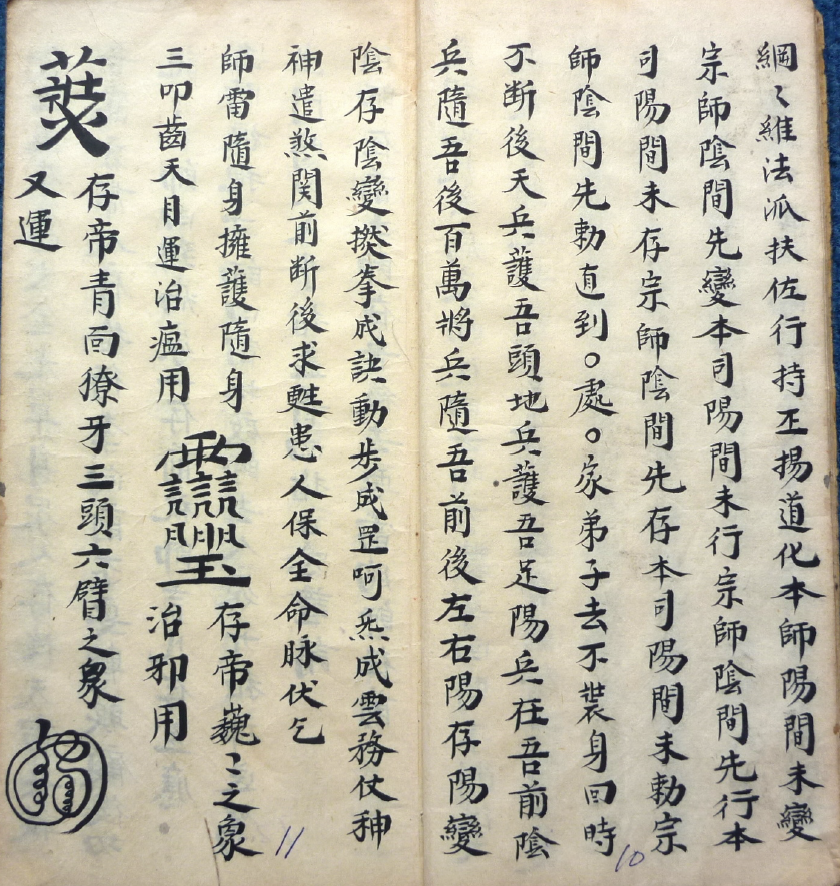 綱〻維法派扶佐行持丕揚道化本師陽間未變
宗師陰間先變本司陽間未行宗師陰間先行本
司陽間未存宗師陰間先存本司陽間未勅宗
師陰間先勅直到〇處〇家弟子去不裝身回時
不断後天兵護吾頭地兵護吾足陽兵在吾前陰
兵隨吾後百萬將兵隨吾前後左右陽存陽變
10
陰存陰變撚拳成訣動步成罡呵炁成雲務仗神
神遣煞関前断後求甦患人保全命脉伏乞
師雷隨身擁護隨身
存帝巍〻之象
三叩齒天目運治瘟用
治邪用
存帝青面獠牙三頭六臂之象
又運
11